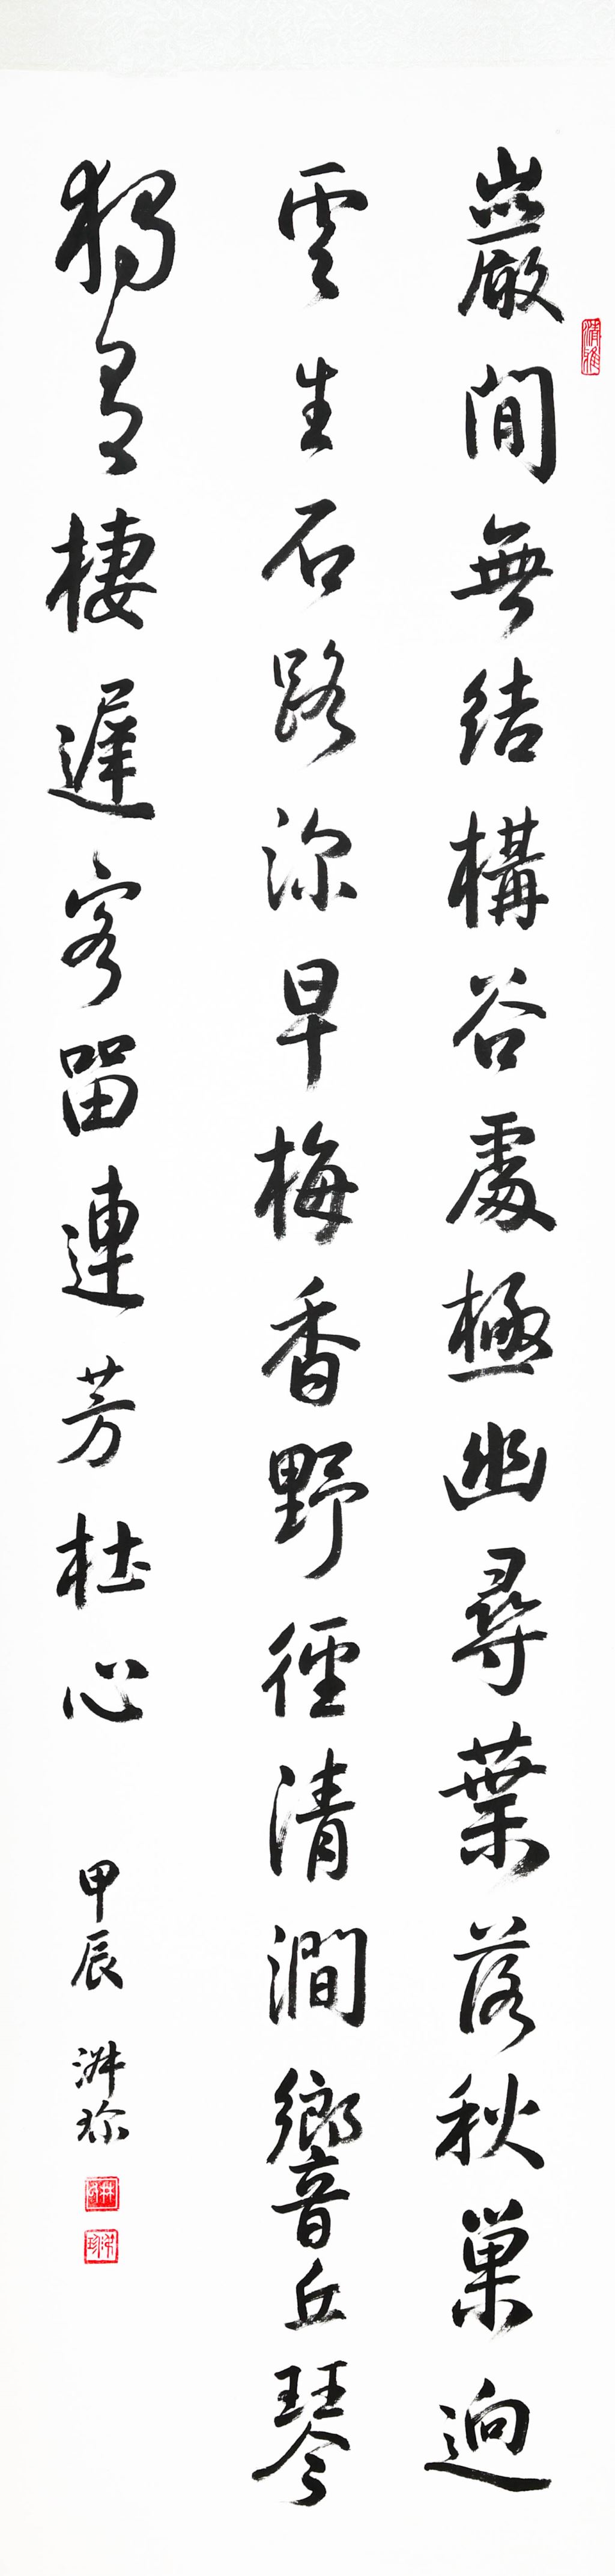 巖間無結構谷處極幽尋葉落秋巢迥
雲生石路深早梅香野徑清澗響丘琴
獨有棲遲客留連芳杜心
甲辰 洴珎
清雅